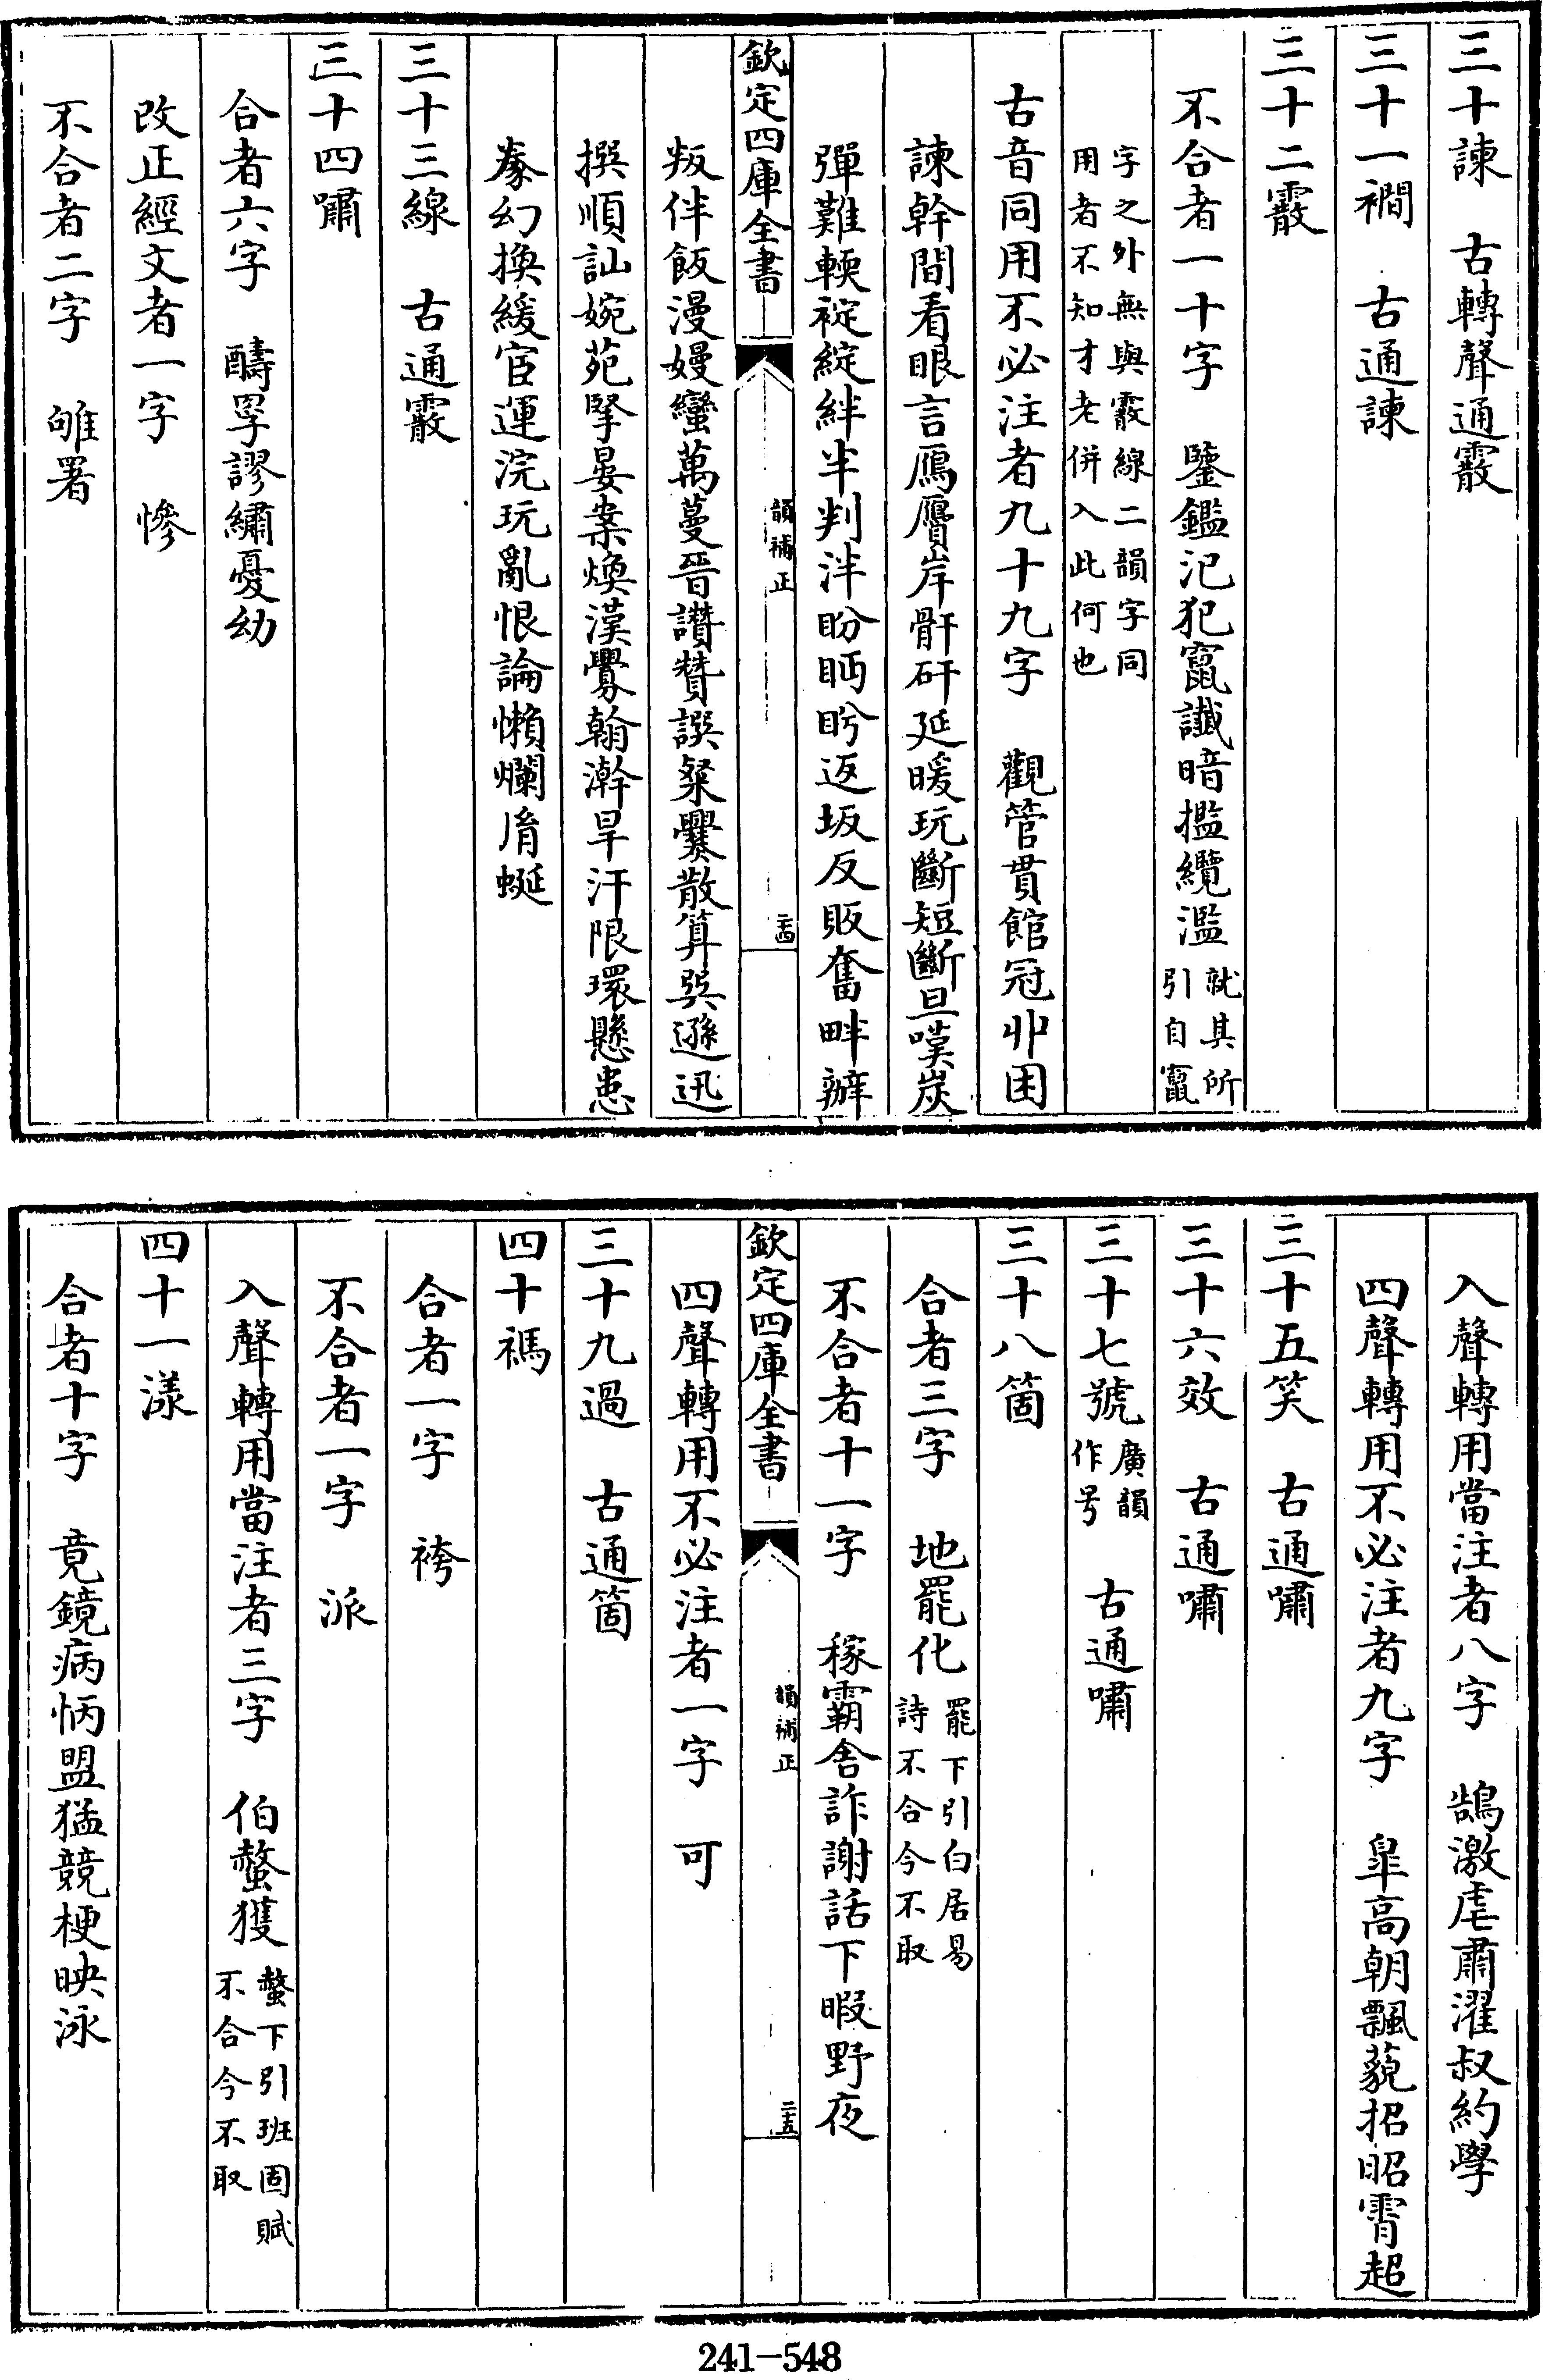 三十諫　古轉聲通霰
三十一襇　古通諫
三十二霰
不合者一十字　鑒鑑氾犯竄讖暗檻纜濫就其所引自竄
字之外無與霰線二韻字同用者不知才老併入此何也
古音同用不必注者九十九字　觀管貫館冠丱困
諫幹間看眼言鴈贗岸骭矸延暖玩斷短斷旦嘆炭
彈難輭䘺綻絆半判泮盼眄盻返坂反販奮畔辦
欽定四庫全書
韻補正
二十四
叛伴飯漫嫚蠻萬蔓晉讚贊譔粲爨散算巽遜迅
撰順訕婉苑掔晏案煥漢鷽翰瀚旱汗限環懸患
豢幻換緩宦運浣玩亂恨論懶爛胤蜒
三十三線　古通霰
三十四嘯
合者六字　醻罦謬繡憂幼
改正經文者一字　慘
不合者二字　雊署
入聲轉用當注者八字　鵠激虐肅濯叔約學
四聲轉用不必注者九字　皐高朝飄藐招昭霄超
三十五笑　古通嘯
三十六效　古通嘯
三十七號廣韻作号　古通嘯
三十八箇
合者三字　地罷化罷下引白居易詩不合今不取
不合者十一字　稼霸舍詐謝話下暇野夜
欽定四庫全書
韻補正
二十五
四聲轉用不必注者一字　可
三十九過　古通箇
四十禡
合者一字　袴
不合者一字　派
入聲轉用當注者三字　伯螫獲螫下引班固賦不合今不取
四十一漾
合者十字　竟鏡病怲盟猛競梗映泳
241-548